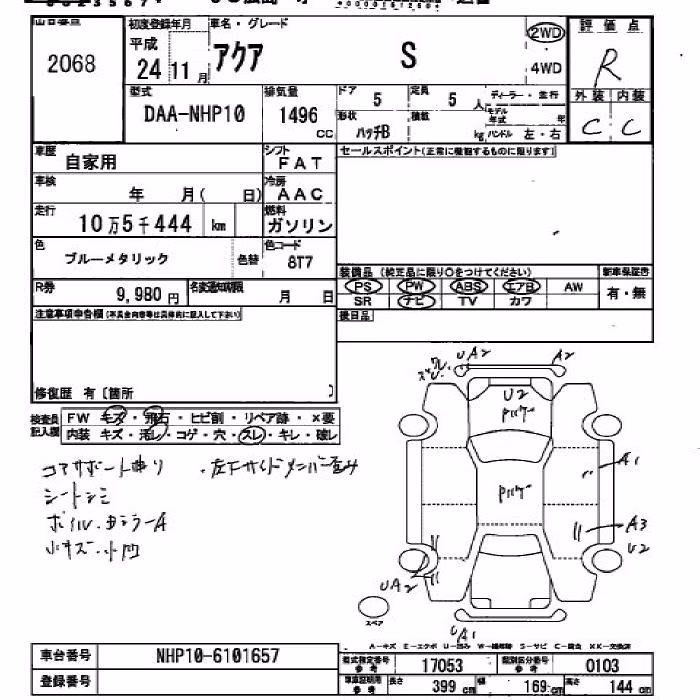 出品番号 初度登録年月 車名・グレード 2WD 評価点
2068 平成 アクア S R
24 11月 4WD 外装 内装
型式 排気量 ドア 5 定員 5人 ディーラー・並行 C C
DAA-NHP10 1496 cc 形状 ハッチB 積載 kg モデル年式 年 ハンドル 左・右
車歴 自家用 シフト FAT セールスポイント(正常に機能するものに限ります)
車検 年 月( 日) 冷房 AAC
走行 10万5千444 km 燃料 ガソリン
色 ブルーメタリック 色替 色コード 8T7
装備品 (純正品に限り○をつけてください) 新車保証書
R券 9,980円 名変通知期限 月 日 PS PW ABS エアB AW 有・無
SR ナビ TV カワ
注意事項申告欄 後日品
修復歴 有〔箇所 〕
検査員記入欄 FW キズ・飛石・ヒビ割・リペア跡・×要
内装 キズ・汚レ・コゲ・穴・スレ・キレ・破レ
コアサポート曲り ・左下サイドメンバー歪み
シートシミ
ホイル・カシラーA
小キズ・小凹
UA2 A2
U2
Pパケ
Pパケ
A1
A3
U2
UA2
UA1
スペア
A-キズ E-エクボ U-凹み W-補修跡 S-サビ C-腐食 XX-交換済
車台番号 NHP10-6101657
型式指定番号 参考 17053 類別区分番号 参考 0103
登録番号
車庫証明用 参考 長さ 399cm 幅 169cm 高さ 144cm